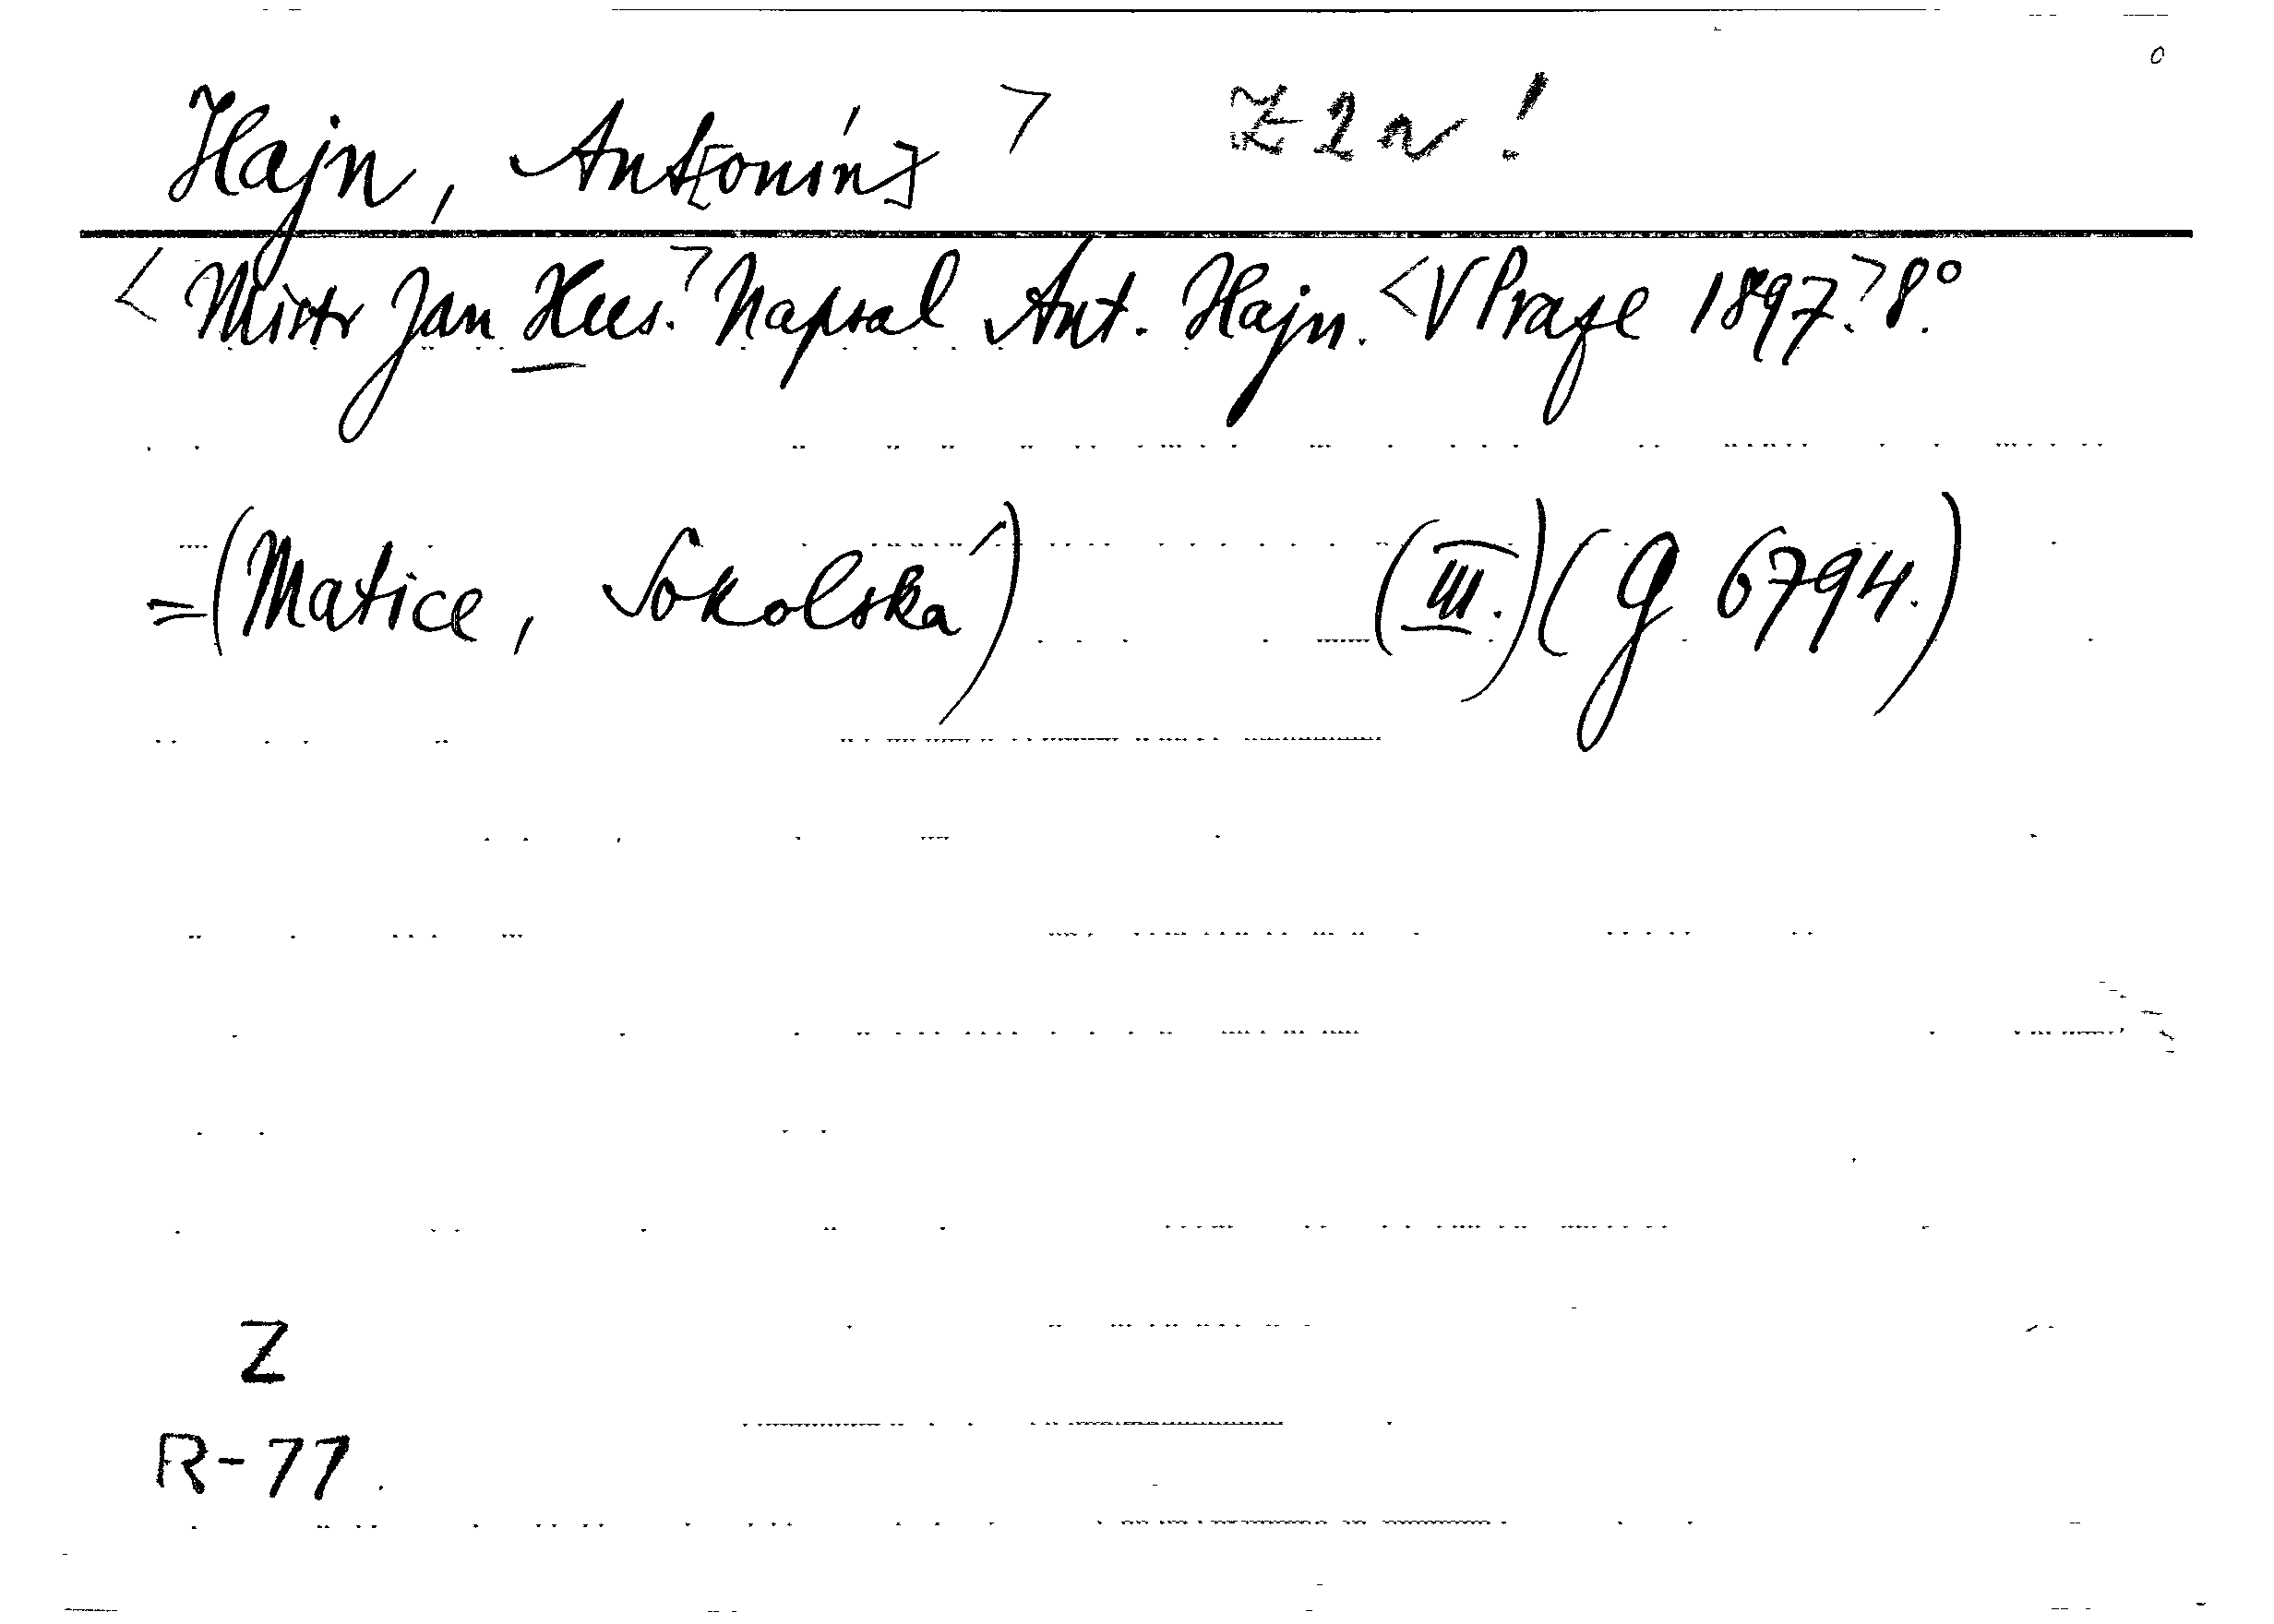 Hajn, Ant[onín] > Z 2 n !
<Mistr Jan Hus.> Napsal Ant. Hajn. <V Praze 1897.> 8.°
=(Matice, Sokolská) (III.) (G 6794.)
Z
R-77.